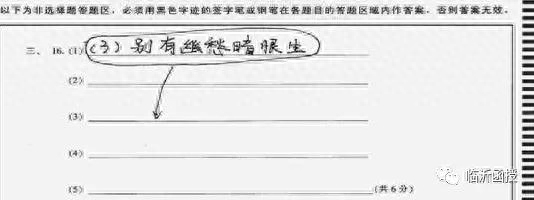 以下为非选择题答题区,必须用黑色字迹的签字笔或钢笔在各题目的答题区域内作答案,否则答案无效。
三、16.(1)(3)别有幽愁暗眼生
(2)
(3)
(4)
(5) (共6分)
临沂函授